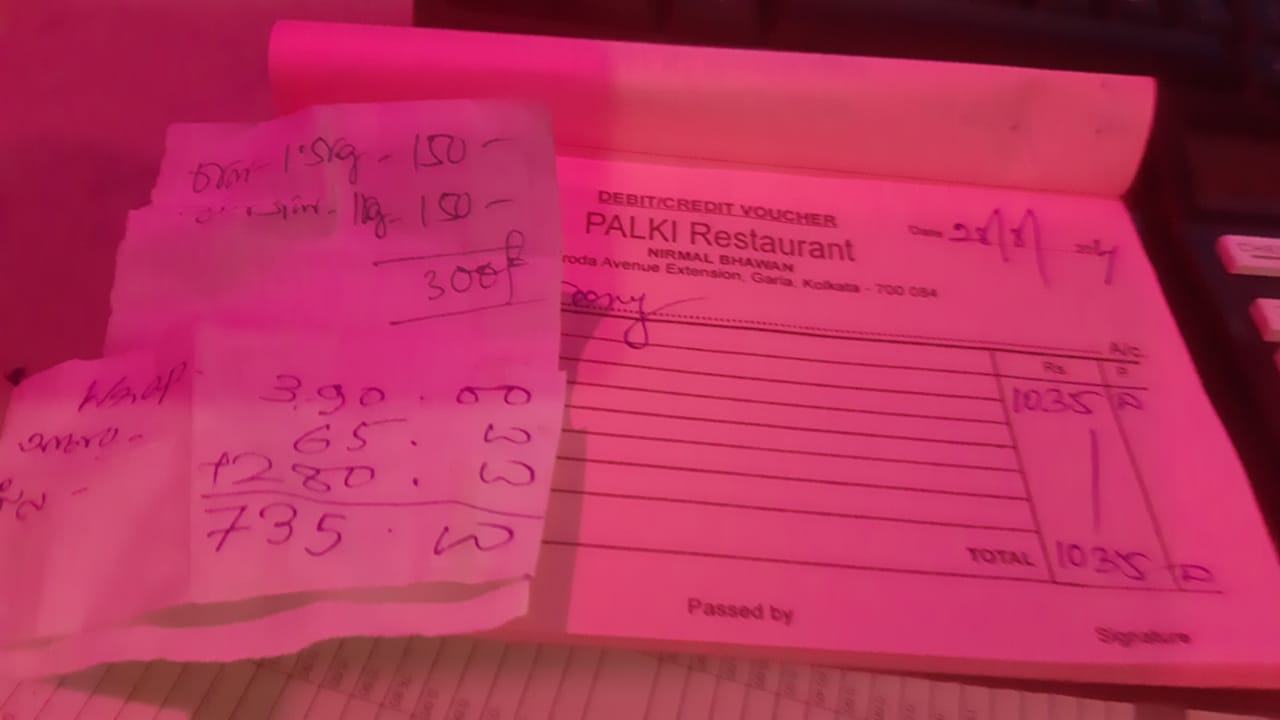 1.5kg - 150 -
1kg - 150 -
300
Wrap
3.90.00
65.00
+280.00
735.00
DEBIT/CREDIT VOUCHER
PALKI Restaurant
NIRMAL BHAWAN
roda Avenue Extension, Garia, Kolkata - 700 084
Date 28/8/
A/c.
Rs. P.
1035
TOTAL 1035
Passed by
Signature